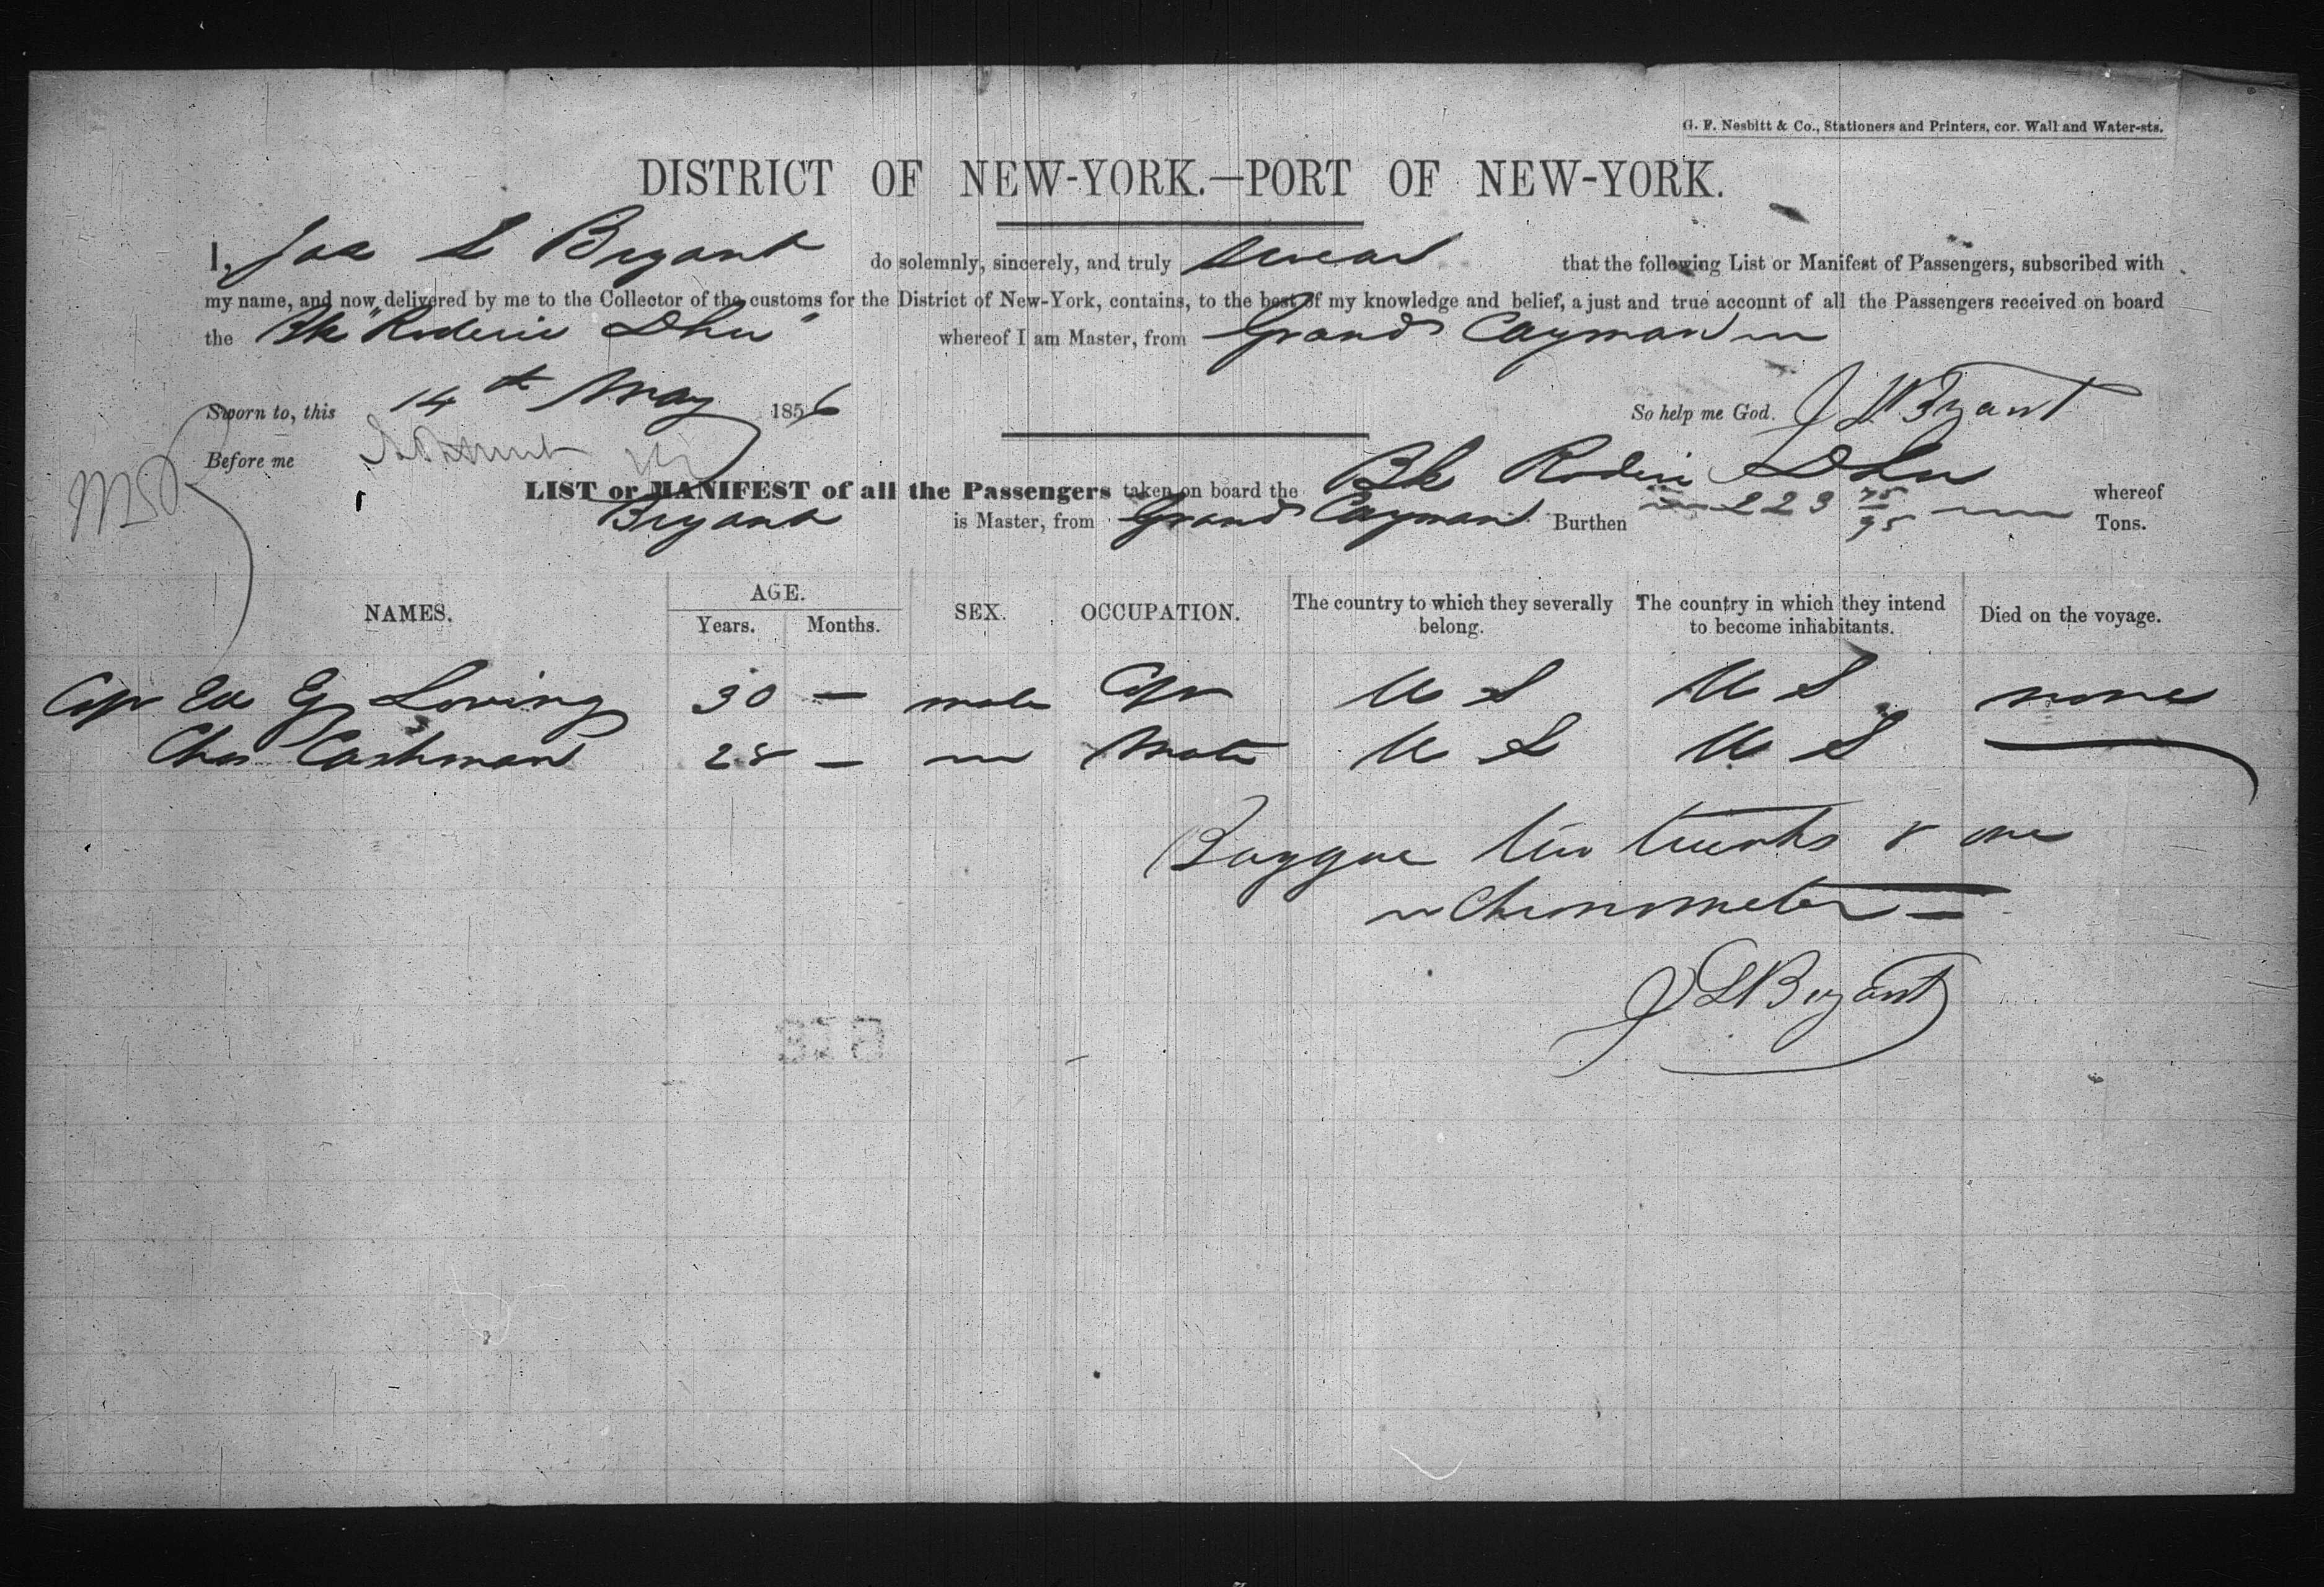 G. F. Nesbitt & Co., Stationers and Printers, cor. Wall and Water-sts.
DISTRICT OF NEW-YORK.—PORT OF NEW-YORK.
I, Jas L Bryant do solemnly, sincerely, and truly swear that the following List or Manifest of Passengers, subscribed with
my name, and now delivered by me to the Collector of the customs for the District of New-York, contains, to the best of my knowledge and belief, a just and true account of all the Passengers received on board
the Bk "Roderic Dhu" whereof I am Master, from Grand Cayman
Sworn to, this 14th May 1856 So help me God. J L Bryant
Before me
LIST or MANIFEST of all the Passengers taken on board the Bk Roderic Dhu whereof
Bryant is Master, from Grand Cayman Burthen 223 75/95 Tons.
NAMES. AGE. SEX. OCCUPATION. The country to which they severally belong. The country in which they intend to become inhabitants. Died on the voyage.
Years. Months.
Cap G Loring 30 — male Cap U S U S none
Chas Cashman 28 — Mate U S U S
Baggage two trunks & one
Chronometer —
J L Bryant